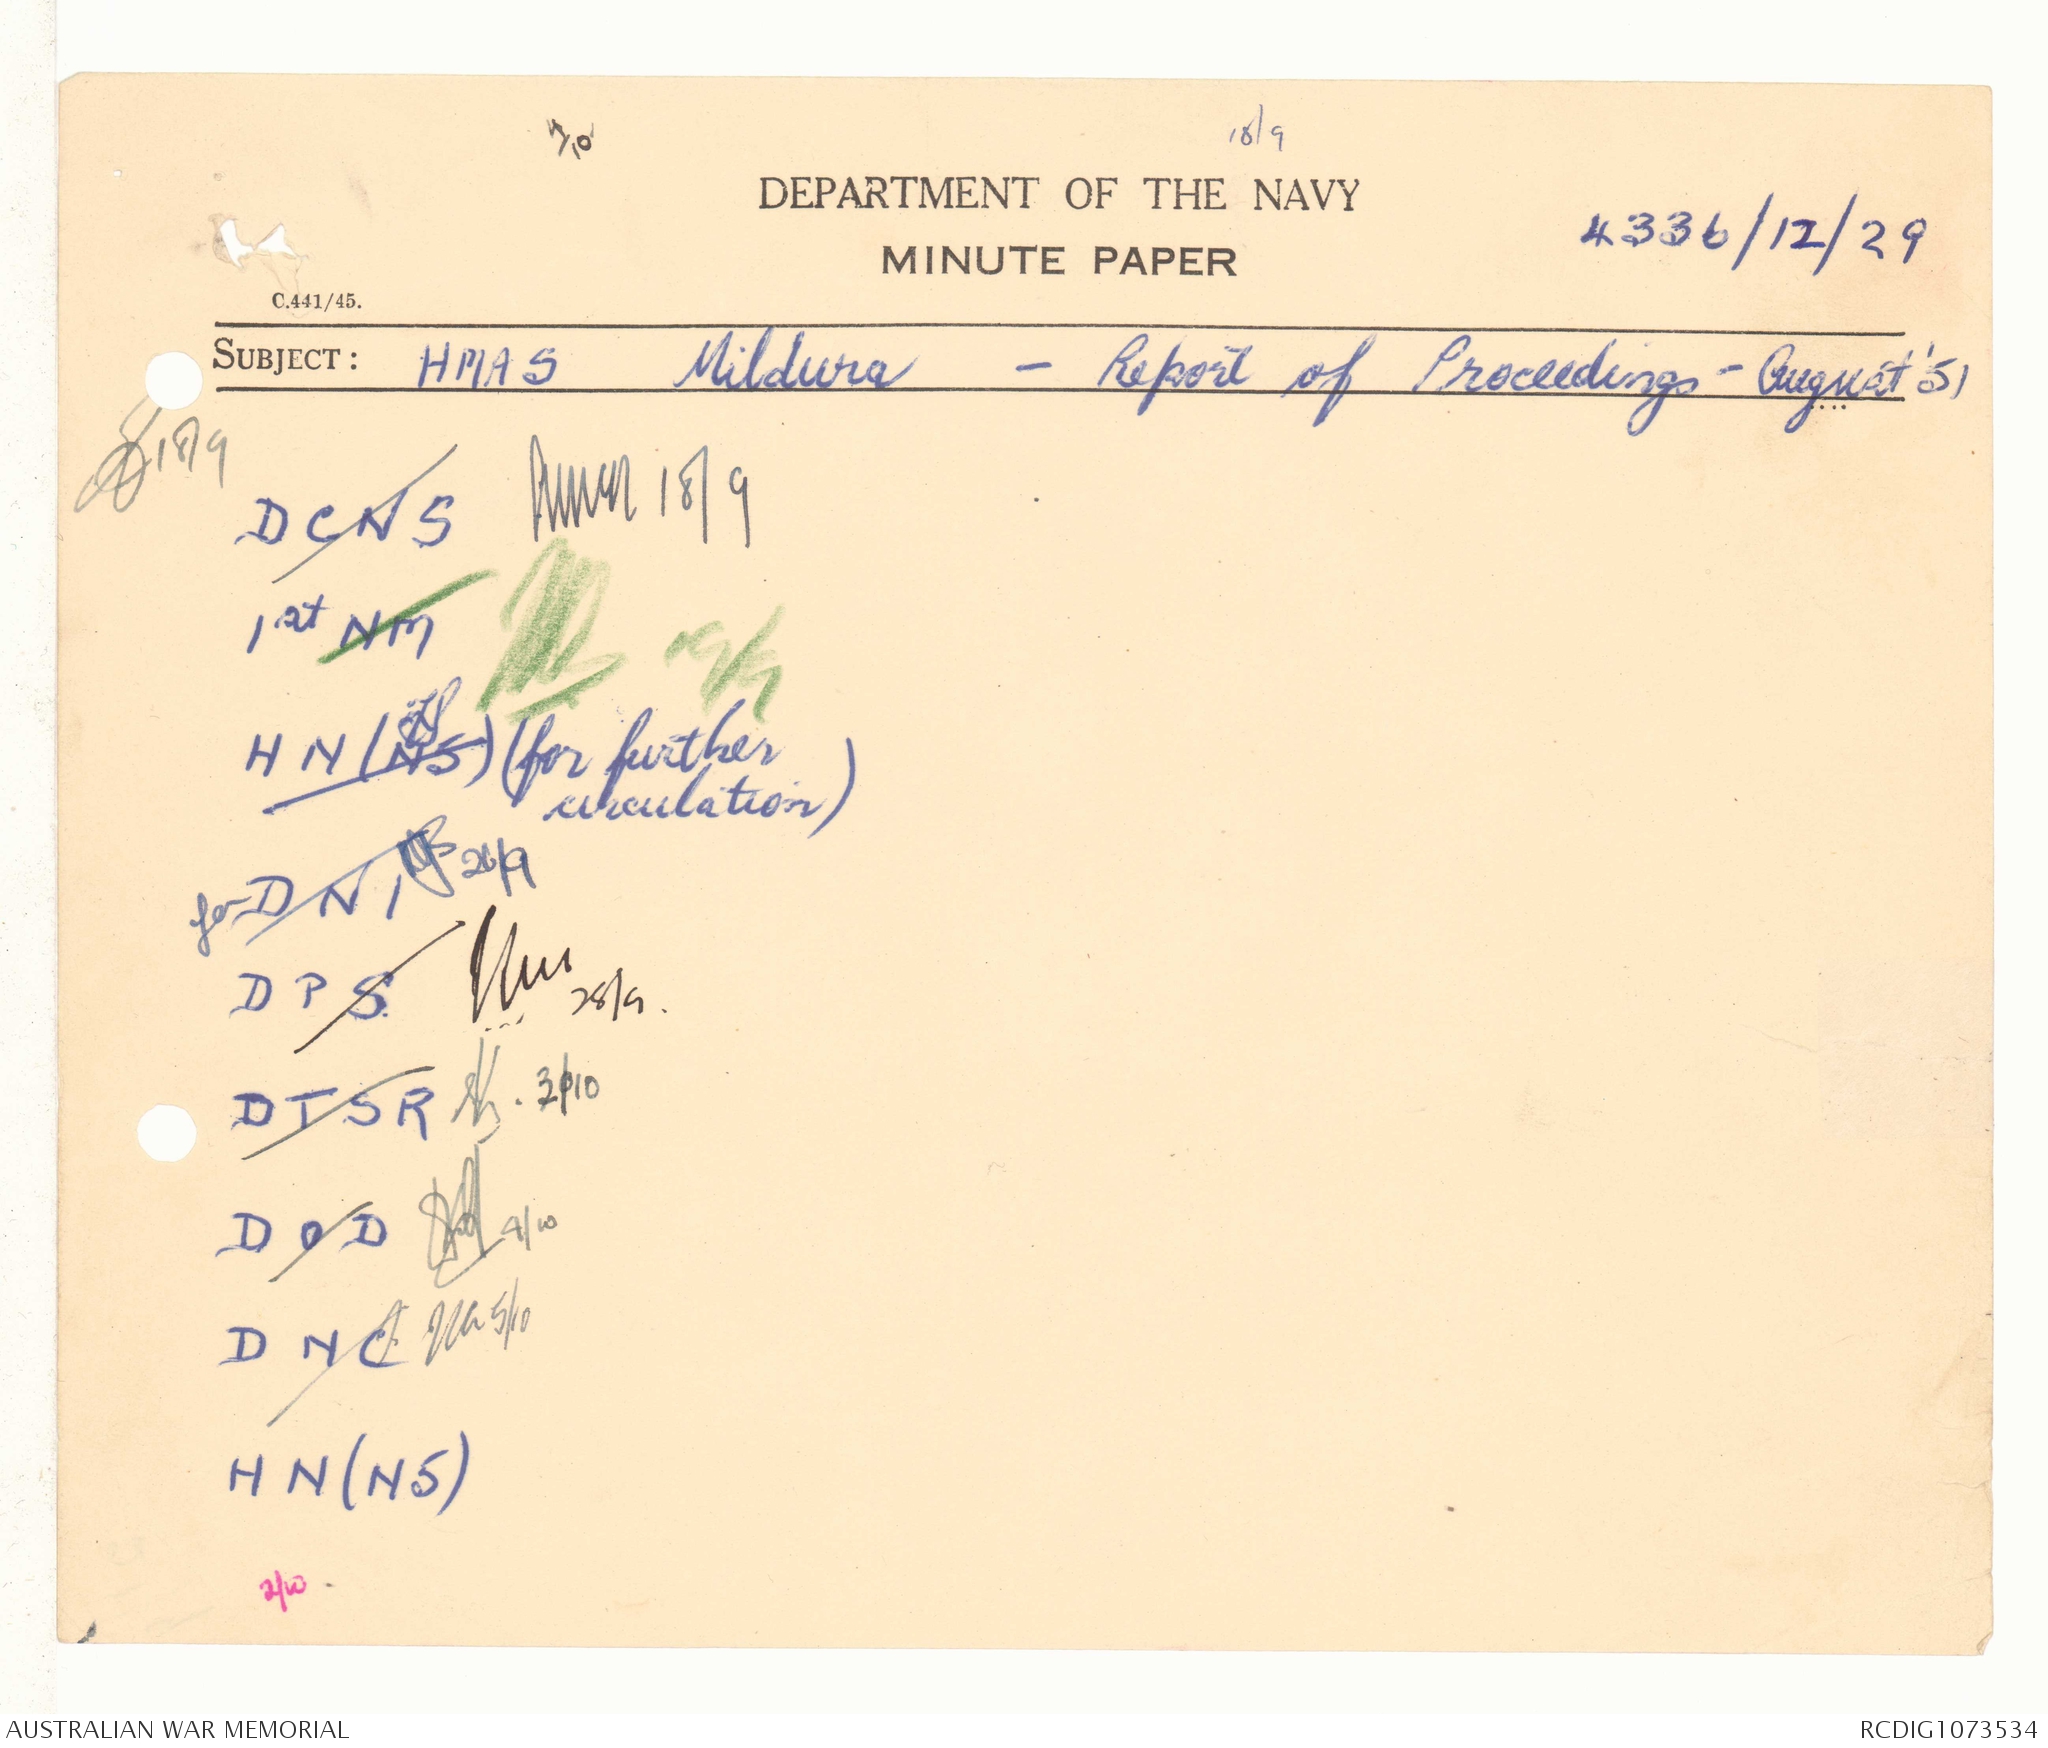 7/10
18/9
DEPARTMENT OF THE NAVY
MINUTE PAPER
4336/12/29
C.441/45.
SUBJECT: HMAS Mildura - Report of Proceedings - August '51
18/9
DCNS 18/9
1st NM 19/9
HN (NS) (for further
circulation)
for DNI 26/9
DPS 28/9.
DTSR 3/10
DOD 4/10
DNC 5/10
HN (NS)
2/10
AUSTRALIAN WAR MEMORIAL
RCDIG1073534